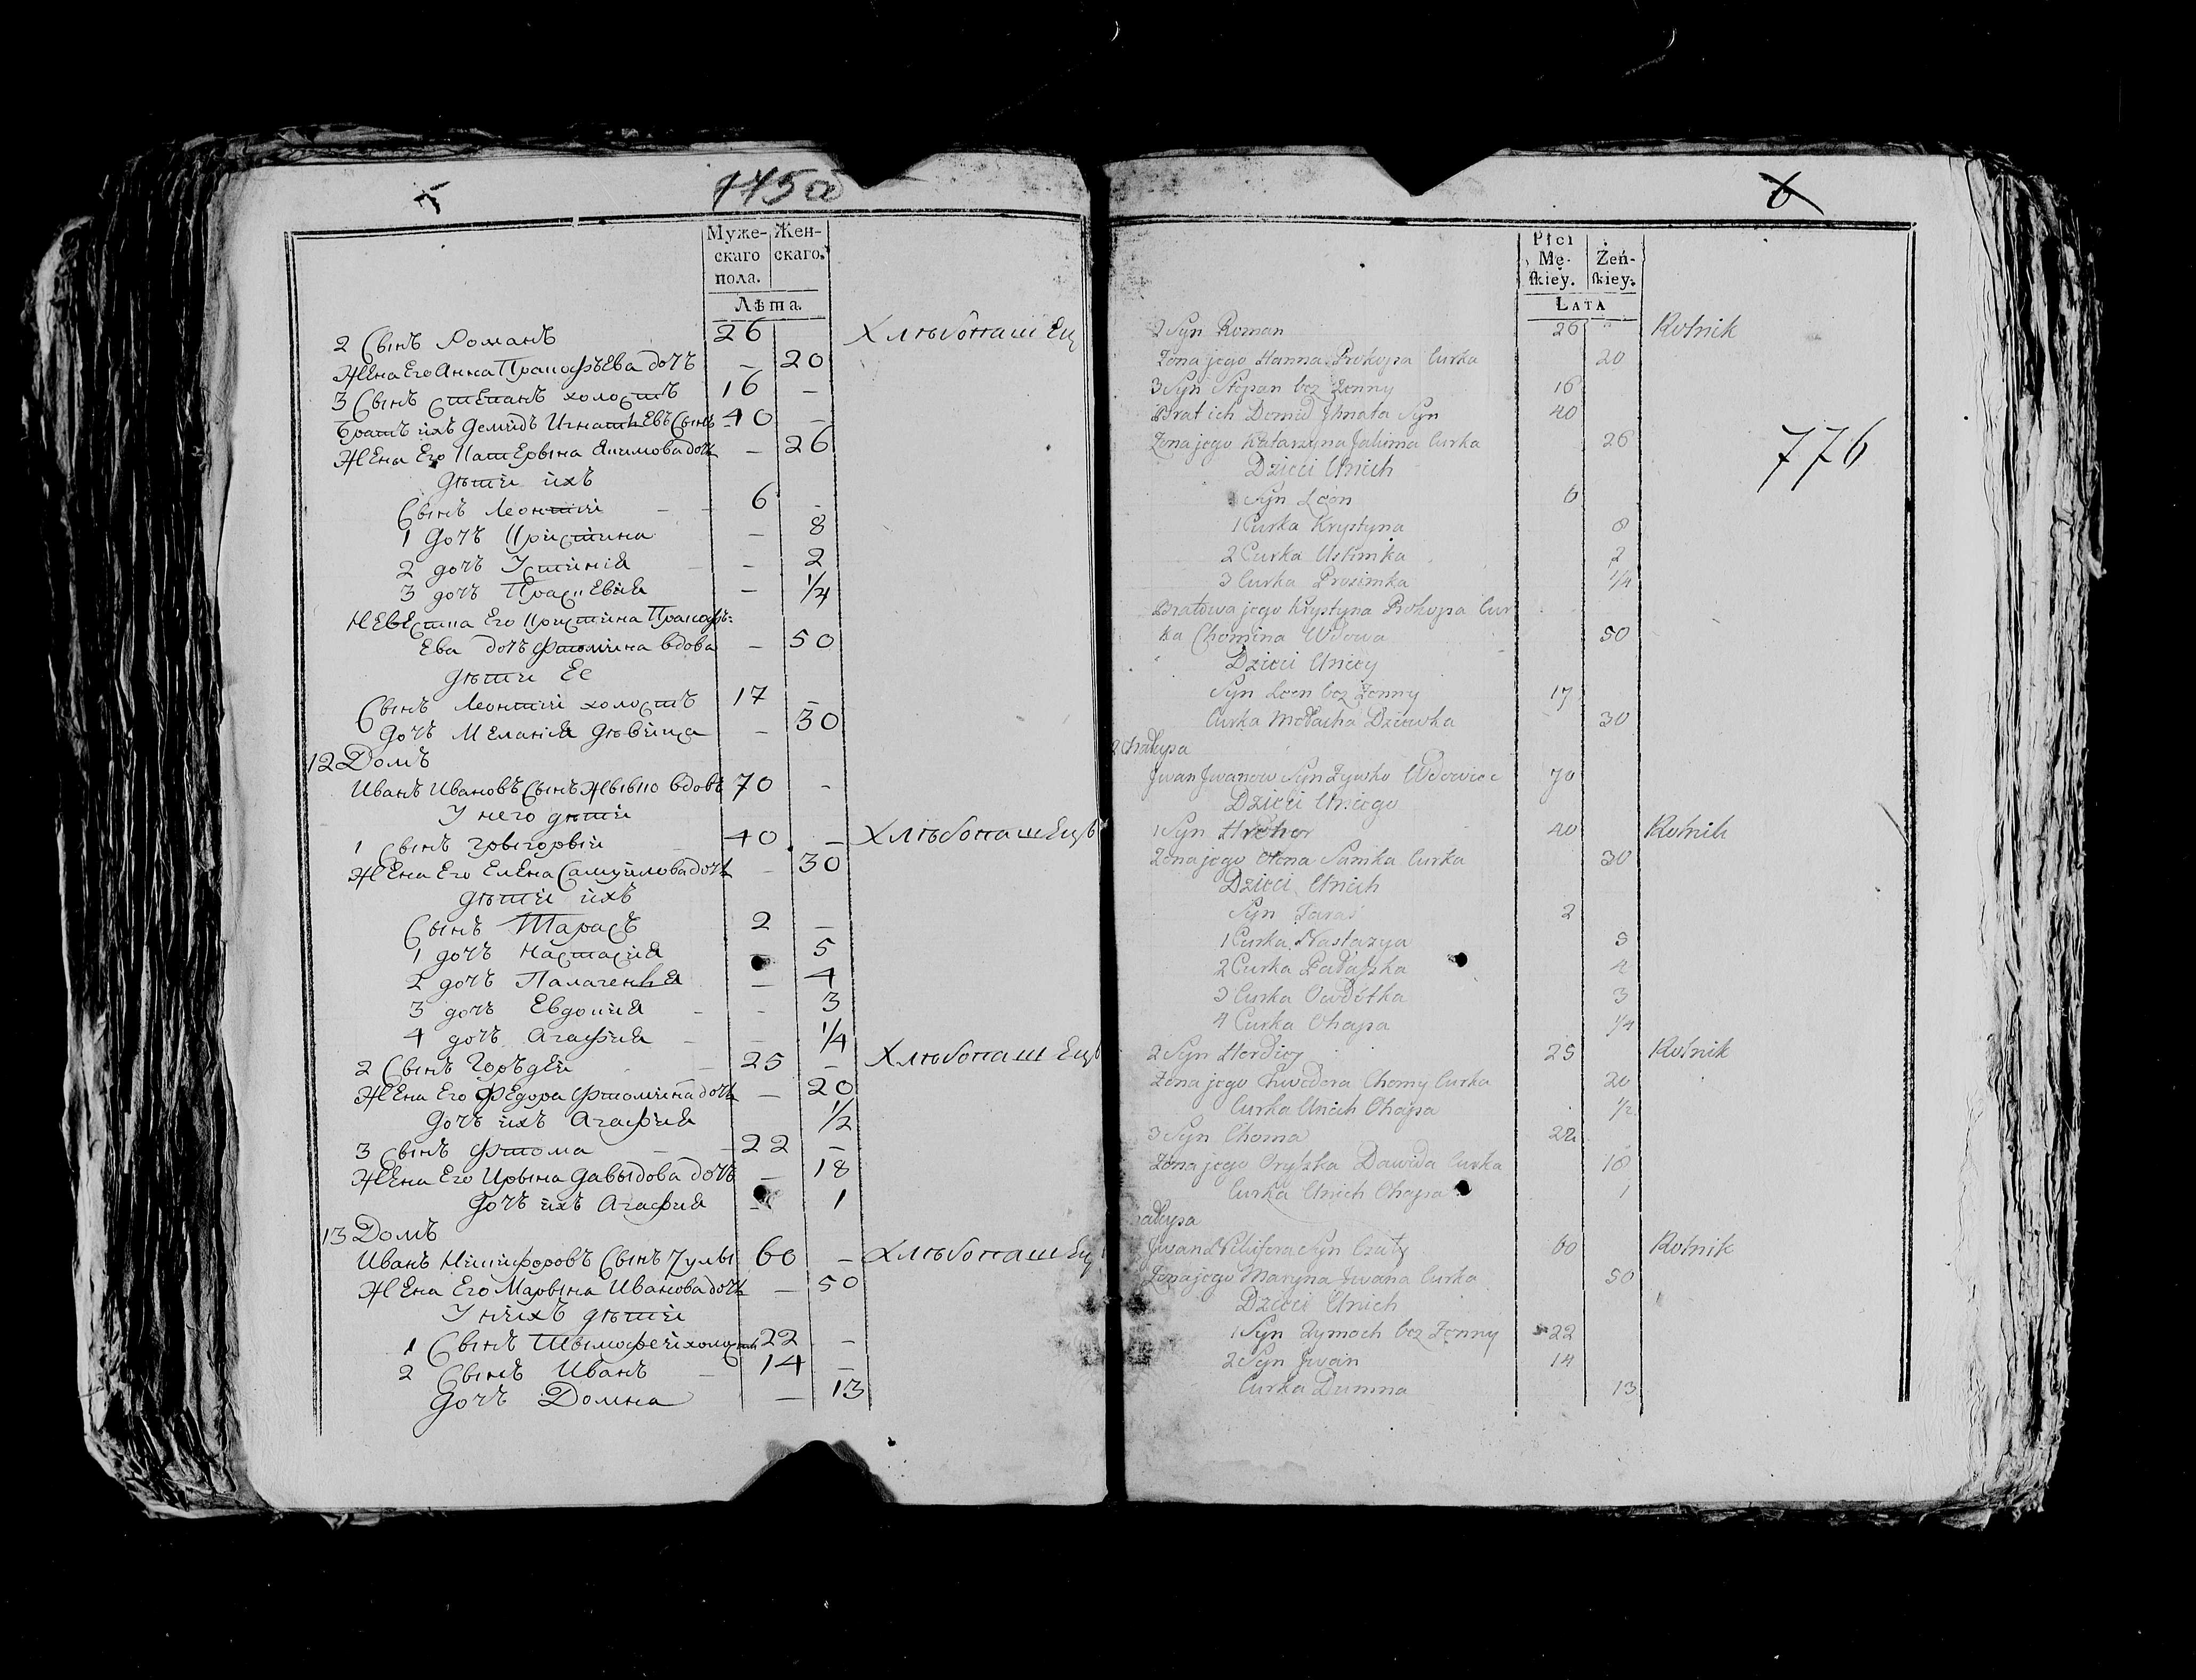 775а
Муже- Жен-
скаго скаго.
пола.
Лѣта.
2 Сынъ Романъ 26 Хлѣбопашец
Жена Его Анна Прокофьева дочь — 20
3 Сынъ Степанъ холостъ 16 —
Братъ ихъ Демидъ Игнатьевъ Сынъ 40 —
Жена Его Катерына Якимова дочь — 26
Дѣти ихъ
Сынъ Леонтий 6 -
1 дочь Кристина — 8
2 дочь Устиния - 2
3 дочь Прасковия — 1/4
Невестка Его Кристина Прокофь=
Ева дочь Фтомина вдова — 50
Дѣти Ее
Сынъ Леонтий холостъ 17 —
дочь Мелания дѣвица — 30
12 Домъ
Иванъ Ивановъ Сынъ Жывко вдовъ 70 -
У него дѣти
1 Сынъ Грыгорый 40 — Хлѣбопашецъ
Жена Его Елена Самуйлова дочь - 30
Дѣти ихъ
Сынъ Тарасъ 2 —
1 дочь Настасия — 5
2 дочь Палагения — 4
3 дочь Евдокия - 3
4 дочь Агафия — 1/4
2 Сынъ Горъдей 25 — Хлѣбопашецъ
Жена Его Федора Фтомина дочь — 20
Дочь ихъ Агафия 1/2
3 Сынъ Фтома 22 —
Жена Его Ирына Давыдова дочь — 18
Дочь ихъ Агафия 1
13 Домъ
Иванъ Никифоровъ Сынъ 60 — Хлѣбопашец
Жена Его Марына Иванова дочь — 50
У нихъ дѣти
1 Сынъ Тымофей холостъ 22 —
2 Сынъ Иванъ 14 —
Дочь Домна — 13
6
Płci
Mę- Żeń-
skiey. skiey.
LATA
2 Syn Roman 26 " Rolnik
Zona jego Hanna Prokopa Curka 20
3 Syn Stepan bez Zonny 16
Brat ich Demid Jhnata Syn 40
Zona jego Katarzyna Jakima Curka 26
Dzieci Unich
Syn Leon 6
1 Curka Krystyna 8
2 Curka Ustimka 2
3 Curka Prosimka 1/4
Bratowa jego Krystyna Prokopa Cur
ka Chomina Wdowa 50
Dzieci Uniey
Syn Leon bez Zonny 17
Curka Mełacha Dziewka 30
2 Chałupa
Jwan Jwanow Syn Zywko Wdowiec 70
Dzieci Uniego
1 Syn Hrehor 40 Rolnik
Zona jego Olena Samka Curka 30
Dzieci Unich
Syn Taras 2
1 Curka Nastazya 5
2 Curka Pałażka 4
3 Curka Owdotka 3
4 Curka Ohapa 1/4
2 Syn Hordiey 25 Rolnik
Zona jego Chwedora Chomy Curka 20
Curka Unich Ohapa 1/2
3 Syn Choma 22
Zona jego Oryszka Dawida Curka 18
Curka Unich Ohapa 1
hałupa
Jwan Nikifora Syn 60 Rolnik
Zona jego Maryna Jwana Curka 50
Dzieci Unich
1 Syn Tymoch bez Zonny 22
2 Syn Jwan 14
Curka Dumna 13
776